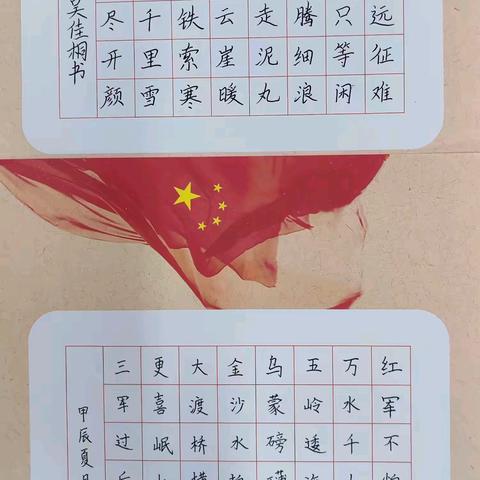 远征难
只等闲
腾细浪
走泥丸
云崖暖
铁索寒
千里雪
尽开颜
吴佳桐书
红军不怕
万水千
五岭逶
乌蒙磅礴
金沙水拍
大渡桥横
更喜岷
三军过后
甲辰夏